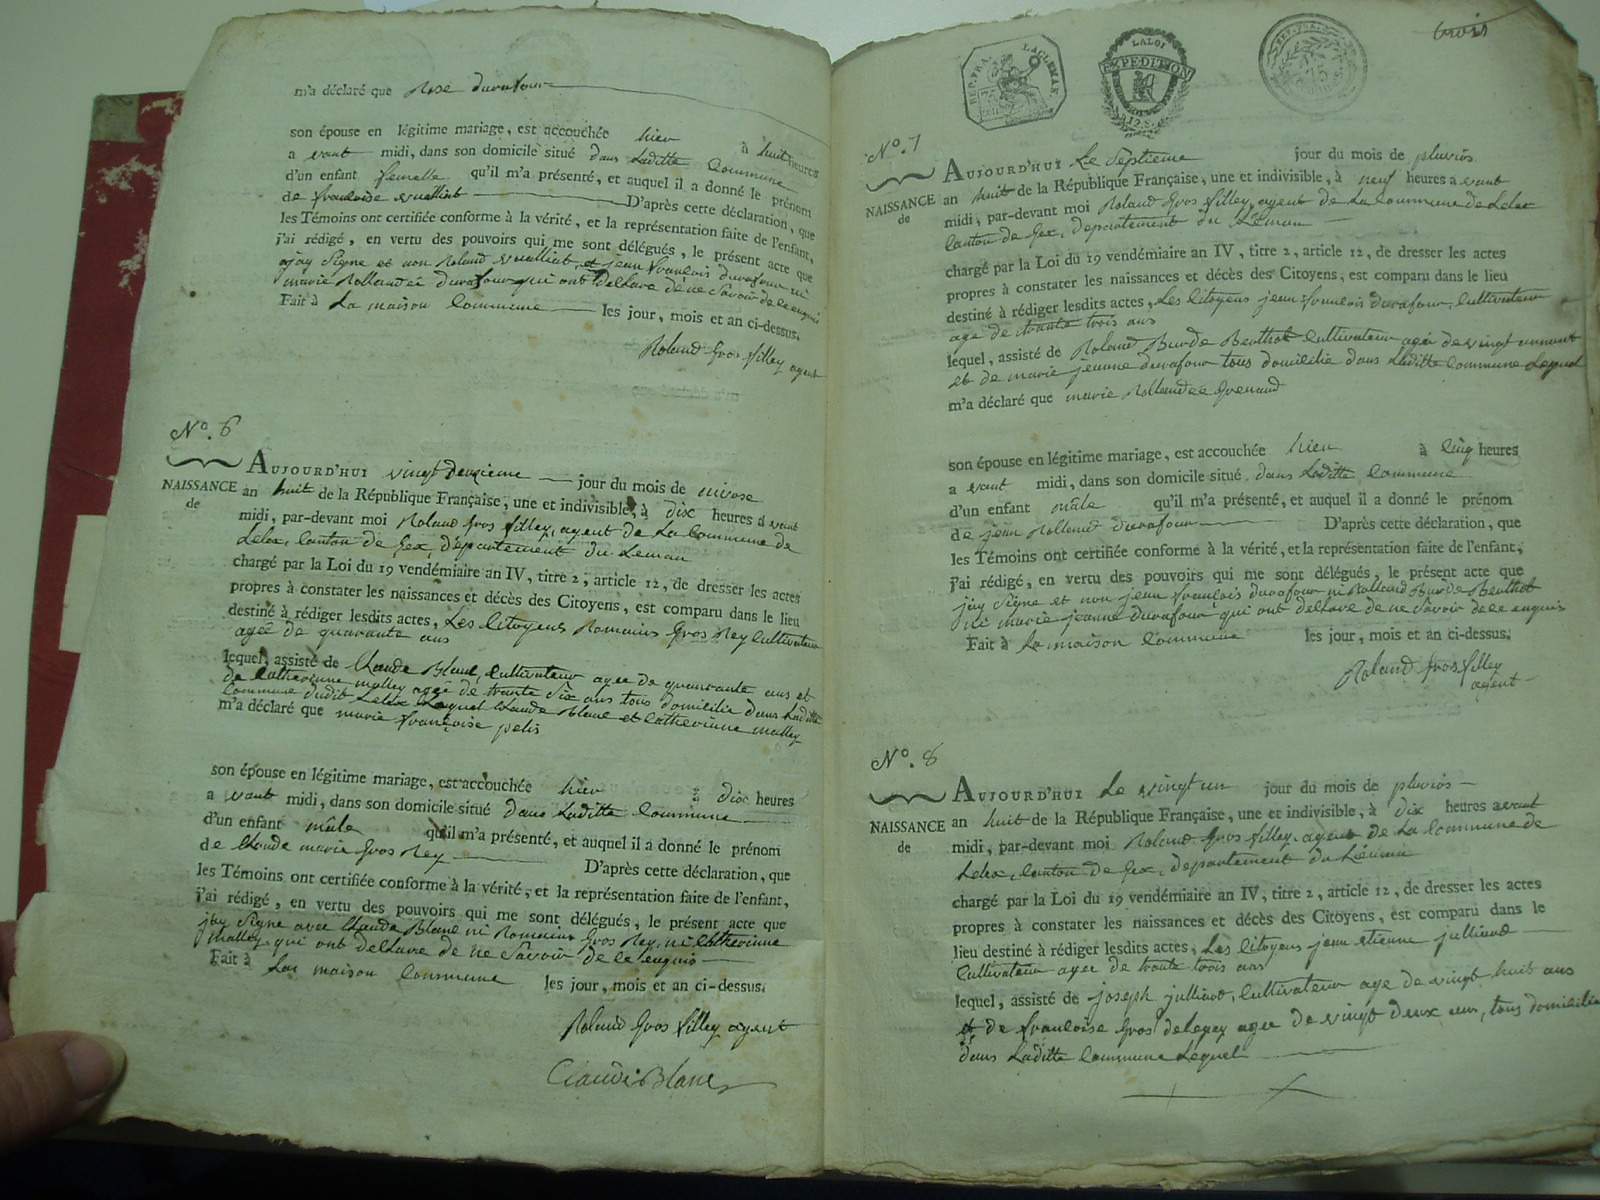 m'a déclaré que Rose Durafour
son épouse en légitime mariage, est accouchée hier à huit heures
a vant midi, dans son domicile situé dans Laditte Commune
d'un enfant femelle qu'il m'a présenté, et auquel il a donné le prénom
de françoise D'après cette déclaration, que
les Témoins ont certifiée conforme à la vérité, et la représentation faite de l'enfant,
j'ai rédigé, en vertu des pouvoirs qui me sont délégués, le présent acte que
ajay Signe et non Roland et jean françois durafour ni
marie Rollandée durafour qui ont delsare de ne Savoir de ce enquis
Fait à La maison Commune les jour, mois et an ci-dessus.
Roland Gros filley agent
N°. 6
NAISSANCE
de
AUJOURD'HUI vingt deuxieme jour du mois de nivose
an huit de la République Française, une et indivisible, à dix heures a vant
midi, par-devant moi Roland Gros filley, agent de La Commune de
Lelex, Canton de Gex, département du Leman
chargé par la Loi du 19 vendémiaire an IV, titre 2, article 12, de dresser les actes
propres à constater les naissances et décès des Citoyens, est comparu dans le lieu
destiné à rédiger lesdits actes, Les Citoyens Romains Gros Rey Cultivateur
ageé de quarante ans
lequel, assisté de Claude Blanc, Cultivateur agee de quaurante ans et
de Catherinne malley ageé de trante Six ans tous domicilie dans Laditte
Commune dudit Lelex Lequel Claude Blanc et Catherinne malley
m'a déclaré que marie françoise
son épouse en légitime mariage, est accouchée hier à dix heures
a vant midi, dans son domicile situé dans Laditte Commune
d'un enfant mâle qu'il m'a présenté, et auquel il a donné le prénom
de Claude marie Gros Rey D'après cette déclaration, que
les Témoins ont certifiée conforme à la vérité, et la représentation faite de l'enfant,
j'ai rédigé, en vertu des pouvoirs qui me sont délégués, le présent acte que
jay Signe avec Claude Blanc ni Romains Gros Rey, ni Catherinne
malley qui ont delsare de ne Savoir de ce enquis
Fait à La maison Commune les jour, mois et an ci-dessus.
Roland Gros filley agent
Claude Blanc
trois
REP. FRA. LAC LEMAN
LA LOI
EXPEDITION
REP. FRA.
N°. 7
NAISSANCE
de
AUJOURD'HUI Le Septieme jour du mois de pluvios
an huit de la République Française, une et indivisible, à neuf heures a vant
midi, par-devant moi Roland Gros filley, agent de La Commune de Lelex
Canton de Gex, Departement du Léman
chargé par la Loi du 19 vendémiaire an IV, titre 2, article 12, de dresser les actes
propres à constater les naissances et décès des Citoyens, est comparu dans le lieu
destiné à rédiger lesdits actes, Les Citoyens jean françois durafour, Cultivateur
age de trante trois ans
lequel, assisté de Roland Burde Berthot Cultivateur ageé de vingt
et de marie jeanne durafour tous domicilie dans Laditte Commune Lequel
m'a déclaré que marie Rollandée Grenaud
son épouse en légitime mariage, est accouchée hier à Cinq heures
a vant midi, dans son domicile situé dans Laditte Commune
d'un enfant mâle qu'il m'a présenté, et auquel il a donné le prénom
de jean Rolland durafour D'après cette déclaration, que
les Témoins ont certifiée conforme à la vérité, et la représentation faite de l'enfant,
j'ai rédigé, en vertu des pouvoirs qui me sont délégués, le présent acte que
jay Signe et non jean françois durafour ni Rolland Burde Berthot
ni marie jeanne durafour qui ont delsare de ne Savoir de ce enquis
Fait à La maison Commune les jour, mois et an ci-dessus.
Roland Gros filley
agent
N°. 8
NAISSANCE
de
AUJOURD'HUI Le vingt un jour du mois de pluvios
an huit de la République Française, une et indivisible, à dix heures avant
midi, par-devant moi Roland Gros filley, agent de La Commune de
Lelex, Canton de Gex, Departement du Léman
chargé par la Loi du 19 vendémiaire an IV, titre 2, article 12, de dresser les actes
propres à constater les naissances et décès des Citoyens, est comparu dans le
lieu destiné à rédiger lesdits actes, Les Citoyens jean etienne julliand
Cultivateur agee de trante trois ans
lequel, assisté de joseph julliand, Cultivateur age de vingt huit ans
et de françoise Gros agee de vingt Deux ans, tous domicilie
dans Laditte Commune Lequel